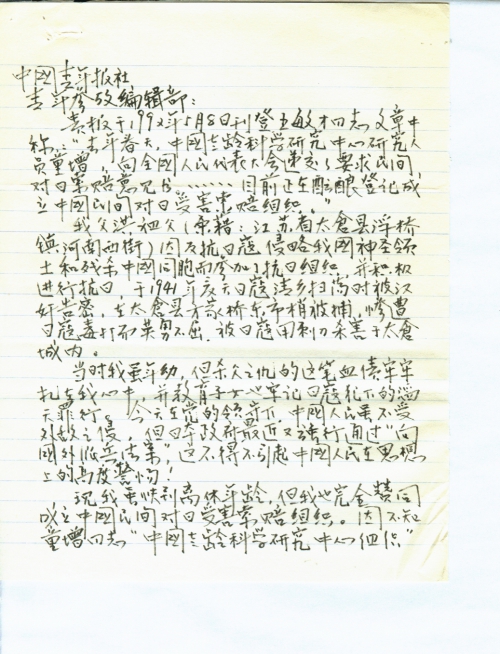 中國青年报社
青年参攷编辑部：
贵报于1992年5月8日刊登王敏才同志文章中
称："去年春天，中國老龄科学研究中心研究人
员童增，向全國人民代表大会递交了要求民间
对日索赔意见书……目前正在酝酿登记成
立中國民间对日受害索赔组织。"
我父洪祖父（原籍：江苏省太倉县浮桥
镇河南西街）因反抗日寇侵略我國神圣领
土和残杀中國同胞而参加了抗日组织，并积极
进行抗日，于1941年度天日寇清乡扫荡时被汉
奸告密，在太倉县方家桥东市梢被捕，惨遭
日寇毒打而英勇不屈，被日寇用刺刀杀害于太倉
城内。
当时我虽年幼，但杀父之仇的这笔血债牢牢
扎在我心中，并教育子女也牢记日寇犯下的滔
天罪行。今天在党的领导下，中國人民虽不受
外敌之侵，但日本政府最近又强行通过"向
國外派兵法案"，这不得不引起中國人民在思想
上的高度警惕！
况我虽快到离休年龄，但我也完全赞同
成立中國民间对日受害索赔组织。因不知
童增同志"中國老龄科学研究中心组织"